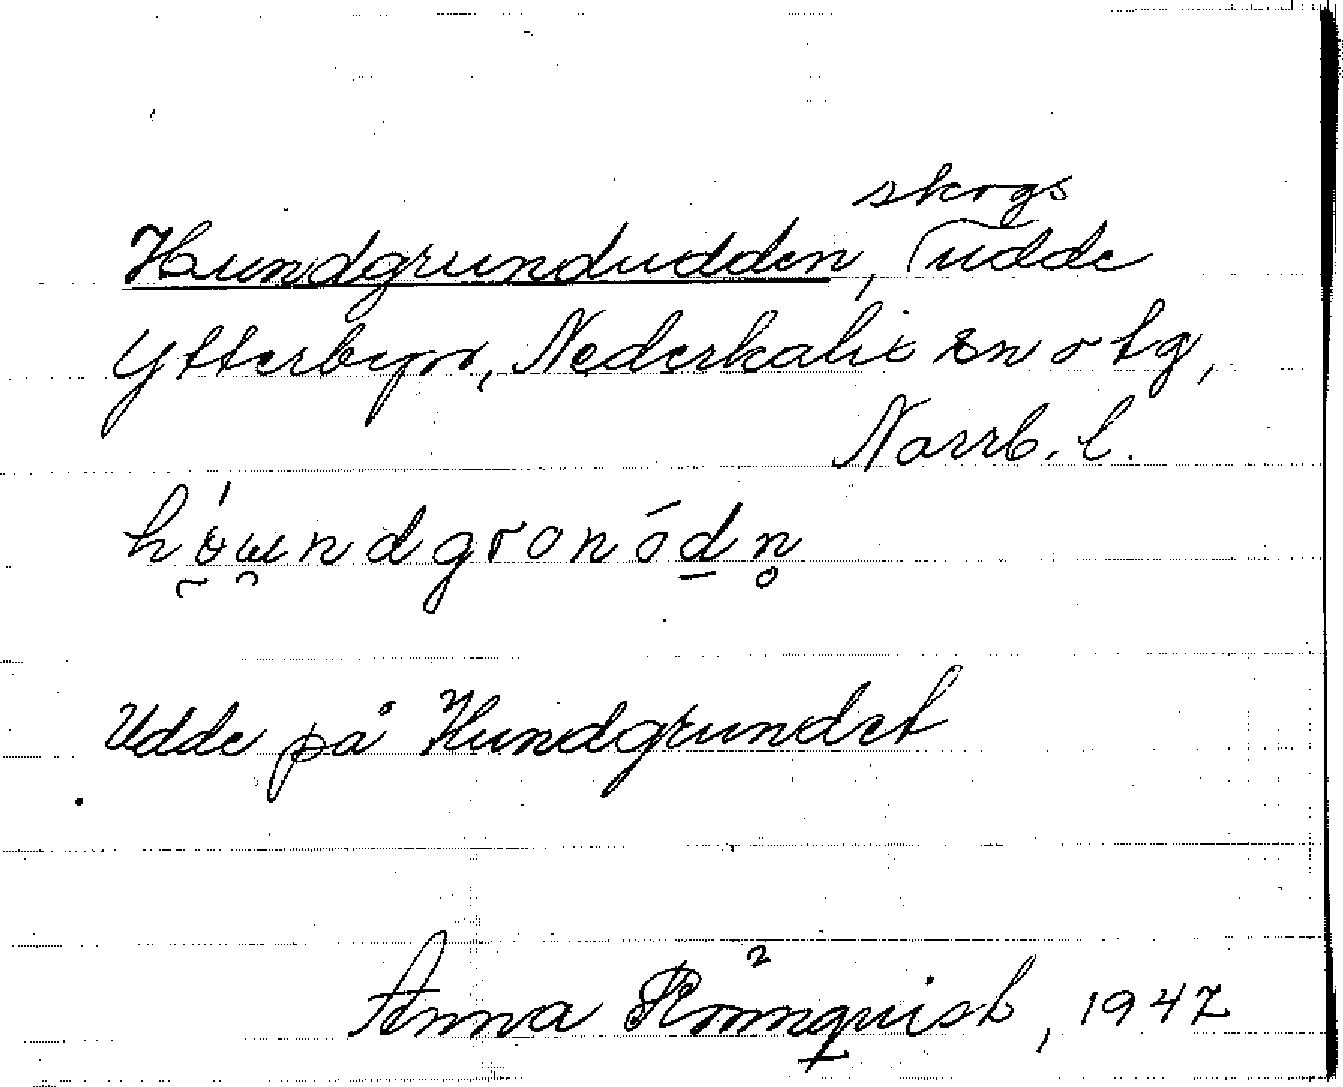 Hundgrundudden, skogsudde
Ytterbyn, Nederkalix sn o tg,
Norrb. l.
Udde på Hundgrundet
Anna Rönnquist, 1947